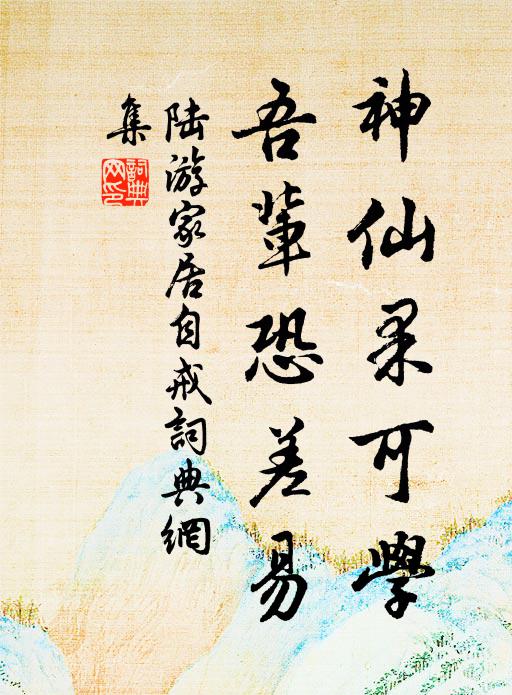 神仙果可學
吾輩恐差易
陆游家居自戒詞典網
集
詞典網印